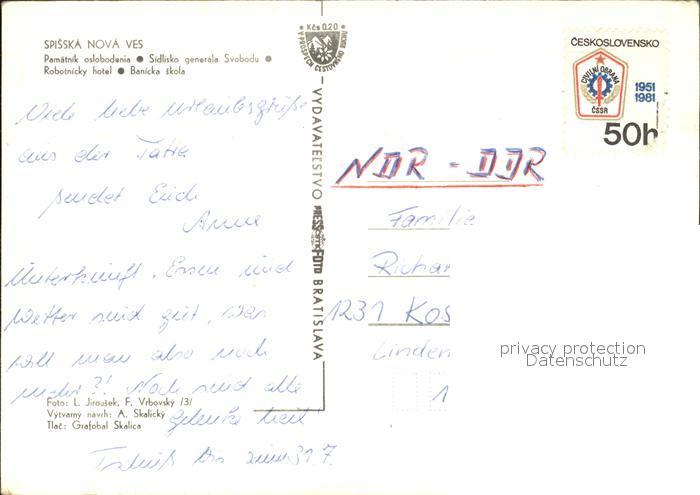 SPIŠSKÁ NOVÁ VES
Pamätník oslobodenia ● Sídlisko generála Svobodu ●
Robotnícky hotel ● Banícka škola
Viele liebe Urlaubsgrüße
aus der Tatra
sendet Euch
Anne
Unterkunft, Essen und
Wetter sind gut, was
will man also noch
mehr?! Noch sind alle
Gelenke heil
Tschüß bis zum 31.7.
Foto: L. Jiroušek, F. Vrbovský /3/
Výtvarný návrh: A. Skalický
Tlač: Grafobal Skalica
Kčs 0,20
V PROSPECH CESTOVNÉHO RUCHU
VYDAVATEĽSTVO
PRESSFOTO
BRATISLAVA
ČESKOSLOVENSKO
CIVILNÍ OBRANA
ČSSR
1951
1981
50h
NDR - DDR
Familie
Richar
1231 Kos
Linden
1
privacy protection
Datenschutz